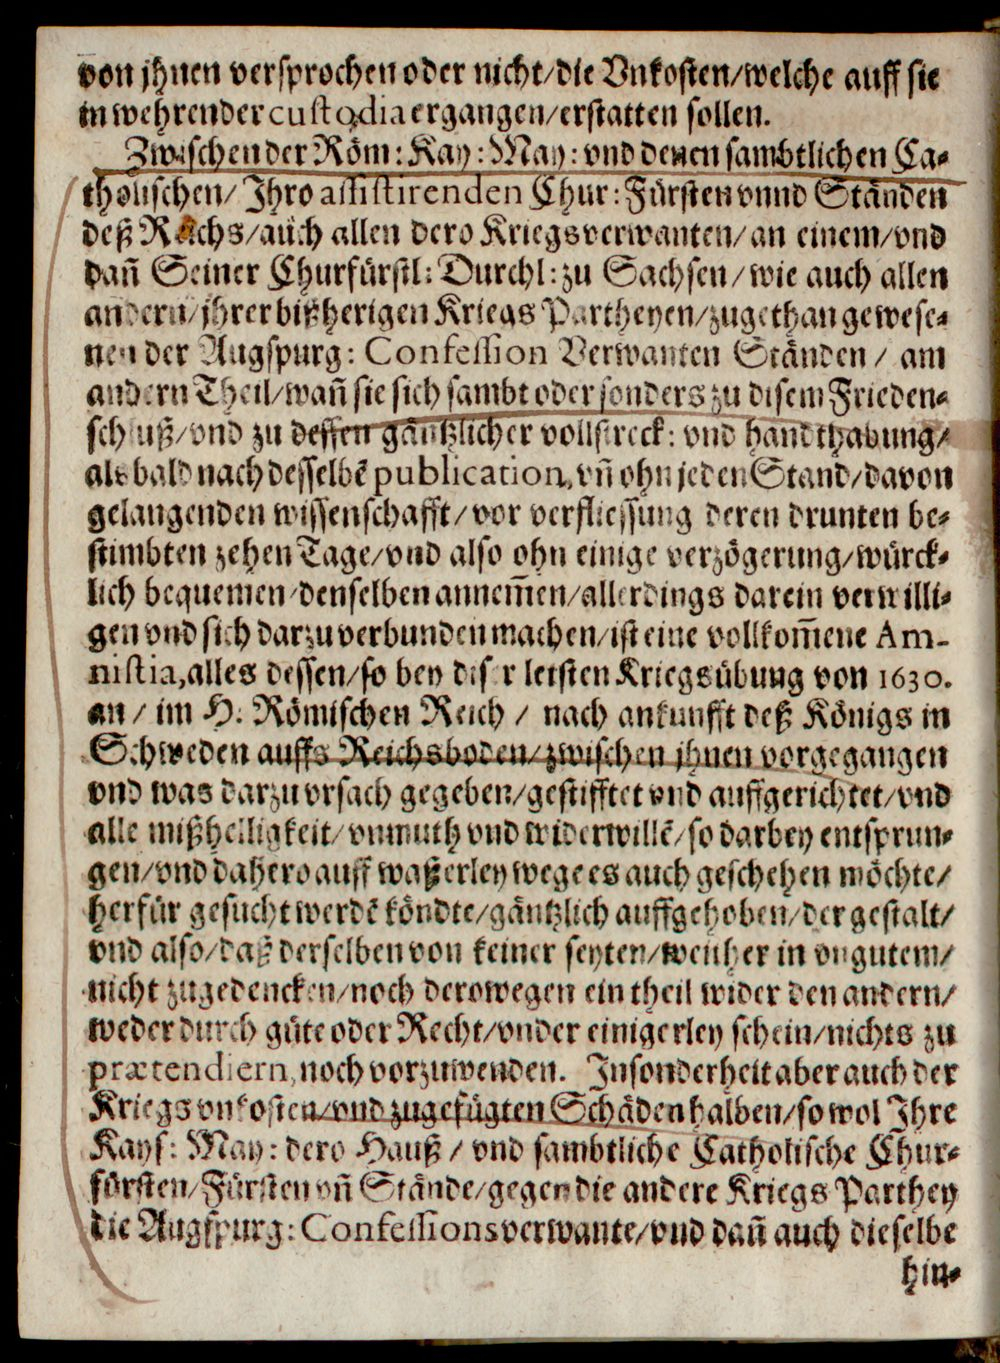 von jhnen versprochen oder nicht/die Vnkosten/welche auff sie
in wehrender custodia ergangen/erstatten sollen.
Zwischen der Röm: Kay: May: vnd denen sambtlichen Ca-
tholischen/ Ihro assistirenden Chur: Fürsten vnnd Ständen
deß Reichs/auch allen dero Kriegsverwanten/an einem/vnd
dañ Seiner Churfürstl: Durchl: zu Sachsen/wie auch allen
andern/jhrer bißherigen Kriegs Partheyen/zugethan gewese-
nen der Augspurg: Confession Verwanten Ständen/ am
andern Theil/wañ sie sich sambt oder sonders zu disem Frieden-
schluß/vnd zu dessen gäntzlicher vollstreck: vnd handthabung/
als bald nach desselbē publication, vñ ohn jeden Stand/davon
gelangenden wissenschafft/vor verfliessung deren drunten be-
stimbten zehen Tage/vnd also ohn einige verzögerung/würck-
lich bequemen/denselben annem̃en/allerdings darein verwilli-
gen vnd sich darzu verbunden machen/ist eine vollkom̃ene Am-
nistia, alles dessen/so bey diser letsten Kriegsübung von 1630.
an/ im H. Römischen Reich/ nach ankunfft deß Königs in
Schweden auffs Reichsboden/zwischen jhnen vorgegangen
vnd was darzu vrsach gegeben/gestifftet vnd auffgerichtet/vnd
alle mißhelligkeit/vnmuth vnd widerwillē/so darbey entsprun-
gen/vnd dahero auff waßerley wege es auch geschehen möchte/
herfür gesucht werdē köndte/gäntzlich auffgehoben/der gestalt/
vnd also/daß derselben von keiner seyten/weither in vngutem/
nicht zugedencken/noch derowegen ein theil wider den andern/
weder durch güte oder Recht/vnder einigerley schein/nichts zu
prætendiern, noch vorzuwenden. Insonderheit aber auch der
Kriegsvnkosten/vnd zugefügten Schäden halben/so wol Ihre
Kays: May: dero Hauß/ vnd sambtliche Catholische Chur-
försten/Fürsten vñ Stände/gegen die andere Kriegs Parthey
die Augspurg: Confessionsverwante/vnd dañ auch dieselbe
hin-